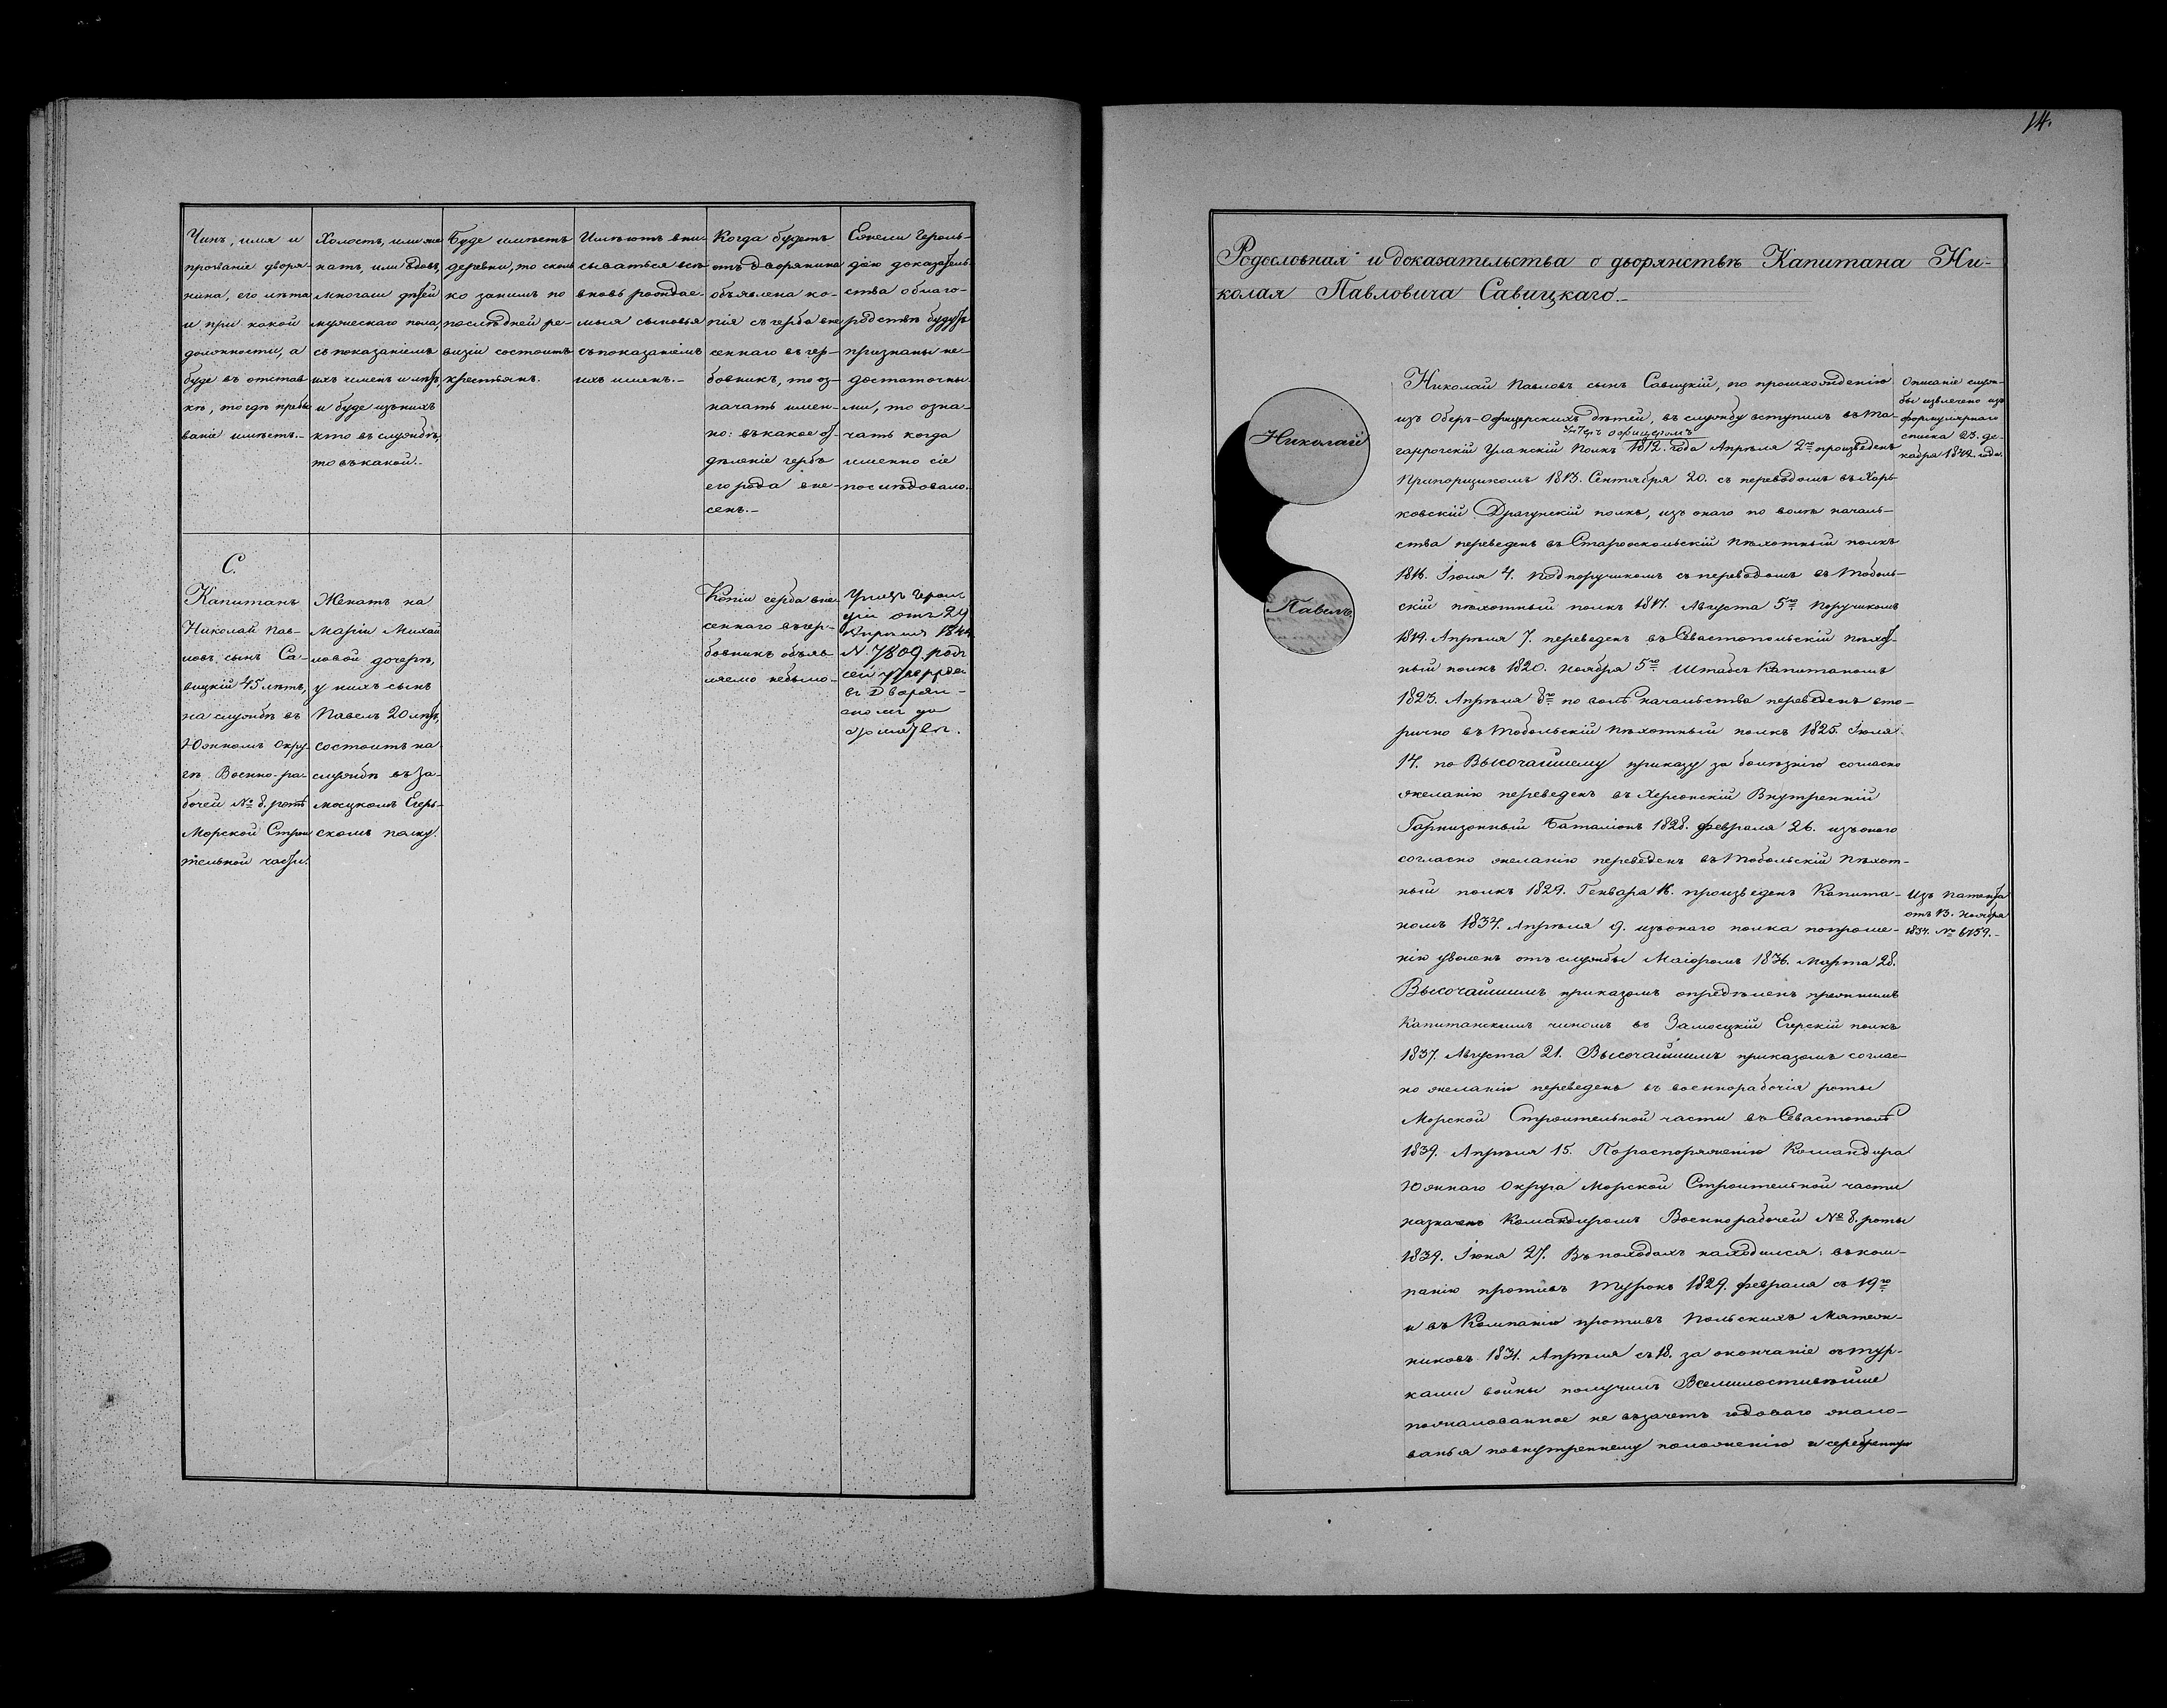 Чинъ, имя и
прозваніе дворя-
нина, его лѣта
и при какой
должности, а
буде въ отстав-
кѣ, то гдѣ пребы
ваніе имѣетъ.-
Холостъ, или же
натъ, или вдовъ,
многоли дѣтей
мужескаго пола,
съ показаніемъ
ихъ именъ и лѣтъ,
и буде изъ нихъ
кто въ службѣ,
то въ какой.-
Буде имѣетъ
деревни, то сколь
ко за нимъ по
послѣдней ре-
визіи состоитъ
крестьянъ.
Имѣютъ впи-
сываться всѣ
вновь раждае-
мыя сыновья
съ показаніемъ
ихъ именъ.-
Когда будетъ
отъ дворянина
объявлена ко-
пія съ герба вне
сеннаго въ гер-
бовникъ, то оз-
начать имен-
но: въ какое от
дѣленіе гербъ
его рода вне-
сенъ.-
Ежели Героль-
діею доказатель
ства о благо-
родствѣ будутъ
признаны не-
достаточны-
ми, то озна-
чать когда
именно сіе
послѣдовало.
С.
Капитанъ
Николай Пав-
ловъ сынъ Са-
вицкій 45 лѣтъ,
на службѣ въ
Южномъ Окру-
гѣ Военно-ра-
бочей № 8. ротѣ
Морской Строи
тельной части.
Женатъ на
Маріи Михай
ловой дочерѣ,
у нихъ сынъ
Павелъ 20 лѣтъ,
состоитъ на
службѣ въ За-
мосцкомъ Егер-
скомъ полку.
Копіи герба вне
сеннаго въ гер-
бовникъ объяв
ляемо небыло-
Указъ Героль
діи отъ 29
Апрѣля 184
N. 7809. родъ
сей
въ Дворян-
скомъ до
14.
Родословная и доказательства о дворянствѣ Капитана Ни-
колая Павловича Савицкаго.-
Николай
Павелъ
Николай Павловъ сынъ Савицкій, по происхожденію
изъ Оберъ-Офицерскихъ дѣтей, въ службу вступилъ въ Та-
Унтеръ офицеромъ
гаррогскій Уланскій Полкъ 1812. года Апрѣля 2го произведенъ
Прапорщикомъ 1813. Сентября 20. съ переводомъ въ Харь-
ковскій Драгунскій полкъ, изъ онаго по волѣ началь-
ства переведенъ въ Старооскольскій пѣхотный полкъ
1816. Іюля 4. Подпоручикомъ съ переводомъ въ Тоболь-
скій пѣхотный полкъ 1817. Августа 5го Поручикомъ
1819. Апрѣля 7. переведенъ въ Севастопольскій пѣхот-
ный полкъ 1820. Ноября 5го Штабсъ Капитаномъ
1823. Апрѣля 8го по волѣ начальства переведенъ вто-
рично въ Тобольскій пѣхотный полкъ 1825. Іюля
14. по Высочайшему приказу за болѣзнію согласно
желанію переведенъ въ Херсонскій Внутренній
Гарнизонный баталіонъ 1828. Февраля 26. изъ онаго
согласно желанію переведенъ въ Тобольскій пѣхот-
ный полкъ 1829. Генваря 16. произведенъ Капита-
номъ 1834. Апрѣля 9. изъ онаго полка по проше-
нію уволенъ отъ службы Маіоромъ 1836. Марта 28.
Высочайшимъ приказомъ опредѣленъ прежнимъ
Капитанскимъ чиномъ въ Замосцкій Егерскій полкъ
1837. Августа 21. Высочайшимъ приказомъ соглас-
но желанію переведенъ въ военнорабочія роты
Морской Строительной части въ Севастополѣ
1839. Апрѣля 15. По распоряженію Командира
Южнаго Округа Морской Строительной части
назначенъ Командиромъ Военнорабочей № 8. роты
1839. Іюня 27. Въ походахъ находился: въ ком-
панію противъ Турокъ 1829. Февраля съ 19го
и въ Компанію противъ Польскихъ Мятеж-
никовъ 1831. Апрѣля съ 18. за окончаніе съ Тур-
ками войны получилъ Всемилостивѣйше
пожалованное не въ зачетъ годоваго жало-
ванья по внутреннему положенію и серебренную
Описаніе служ-
бы извлечено изъ
формулярнаго
списка 23. де-
кабря 1842. года.
Изъ патента
отъ 13. Ноября
1834. № 6159.-